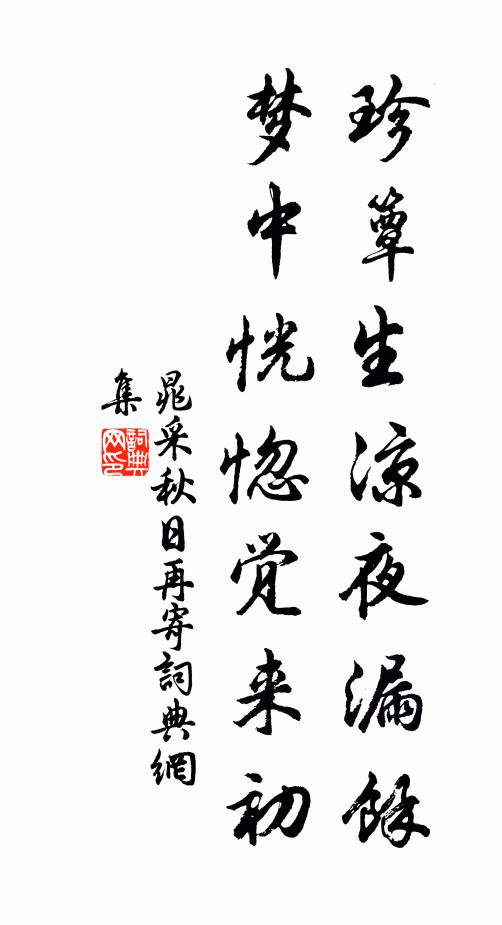 珍簟生涼夜漏餘
梦中恍惚觉来初
晁采秋日再寄詞典網
集
詞典网印